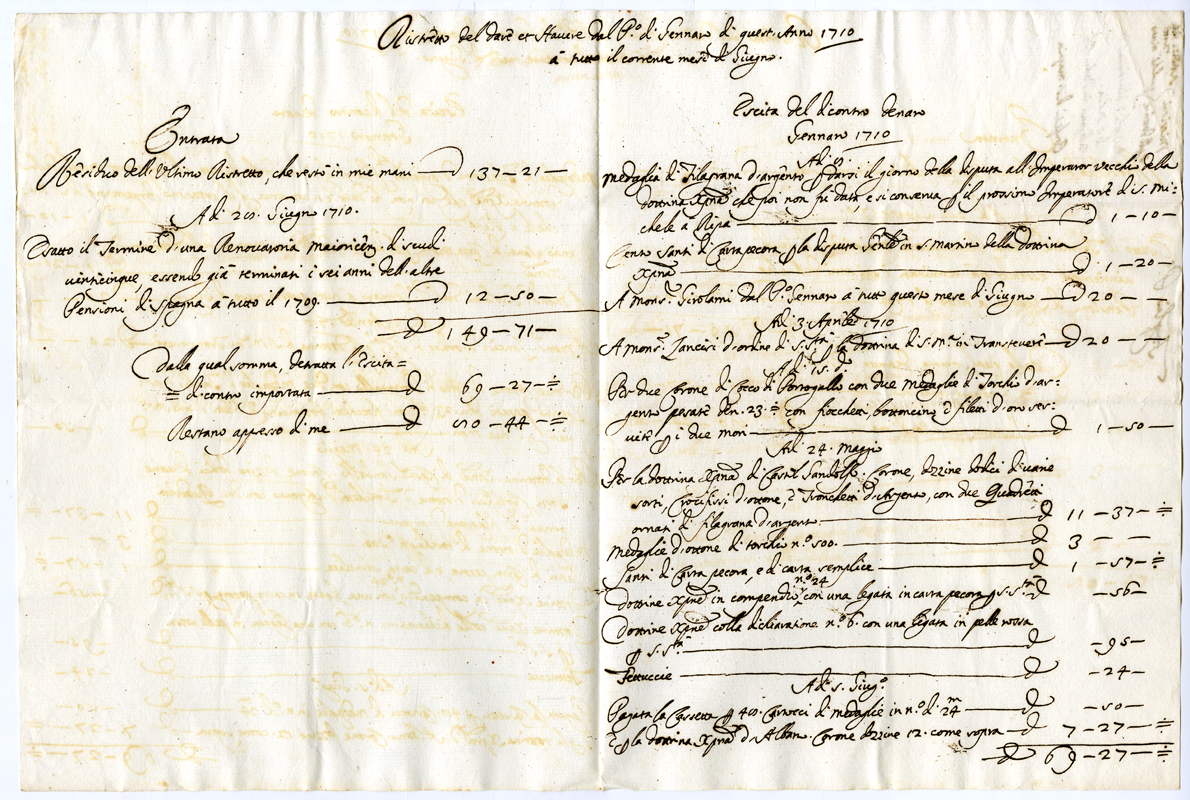 Ristretto del dare et Havere dal P.º di Gennaro di quest'Anno 1710
à tutto il corrente mese di Giugno.
Entrata
Residuo dell'Ultimo Ristretto, che restò in mie mani — 137-21-
A di 20. Giugno 1710.
Esatto il Termine d'una Renovatoria di scudi
venticinque essendo già terminati i sei anni dell'altre
Pensioni di Spagna à tutto il 1709. — 12-50-
149-71-
Dalla qual somma, detratta l'Escita=
= di contro importata — 69-27-÷
Restano appresso di me — 80-44-÷
Escita del dicontro denaro
Gennaro 1710
Medaglia di filagrana d'argento p darsi il giorno della disputa all'Imperator vecchio della
dottrina Xpna che poi non fu data, e si conserva p il prossimo Imperatore di S. Mi=
chele a Ripa — 1-10-
Cento Santi di Carta pecora p la disputa in S. Martino della dottrina
Xpna — 1-20-
A Mons.r Girolami dal P.º Gennaro à tutto questo mese di Giugno — 20 - -
Adi 3. Aprile 1710
A Mons.r Lancisi d'ordine di S. S.tà p la dottrina di S. M.ª in Transtevere — 20 - -
A di 15. d.º
Per due Corone di Cocco di Portogallo con due Medaglie di Torchio d'ar=
gento pesate den. 23.÷ con fiocchetti bottoncino è filetti d'oro ser=
vite p i due mori — 1-50-
Adi 24. Maggio
Per la dottrina Xpna di Castel Gandolfo. Corone, dozzine dodici di varie
sorti, Crocifissi d'ottone, è Tronchetti d'Argento, con due Quadretti
ornati di filagrana d'argento — 11-37-÷
Medaglie d'ottone di torchio n.º 500. — 3 - -
Santi di Carta pecora, e di carta semplice — 1-57-÷
n.º 24
Dottrine Xpne in compendio con una legata in carta pecora p S. S.tà — -56-
Dottrine Xpne colla dichiaratione n.º 6. con una legata in pelle rossa
p S. S.tà — -95-
Fettuccie — -24-
A di 5. Giug.º
Pagata la Cassetta p 40. Cartocci di medaglie in n.º di 24 m — -50-
E p la dottrina Xpna d'Albano Corone dozzine 12. come sopra — 7-27-÷
69-27-÷